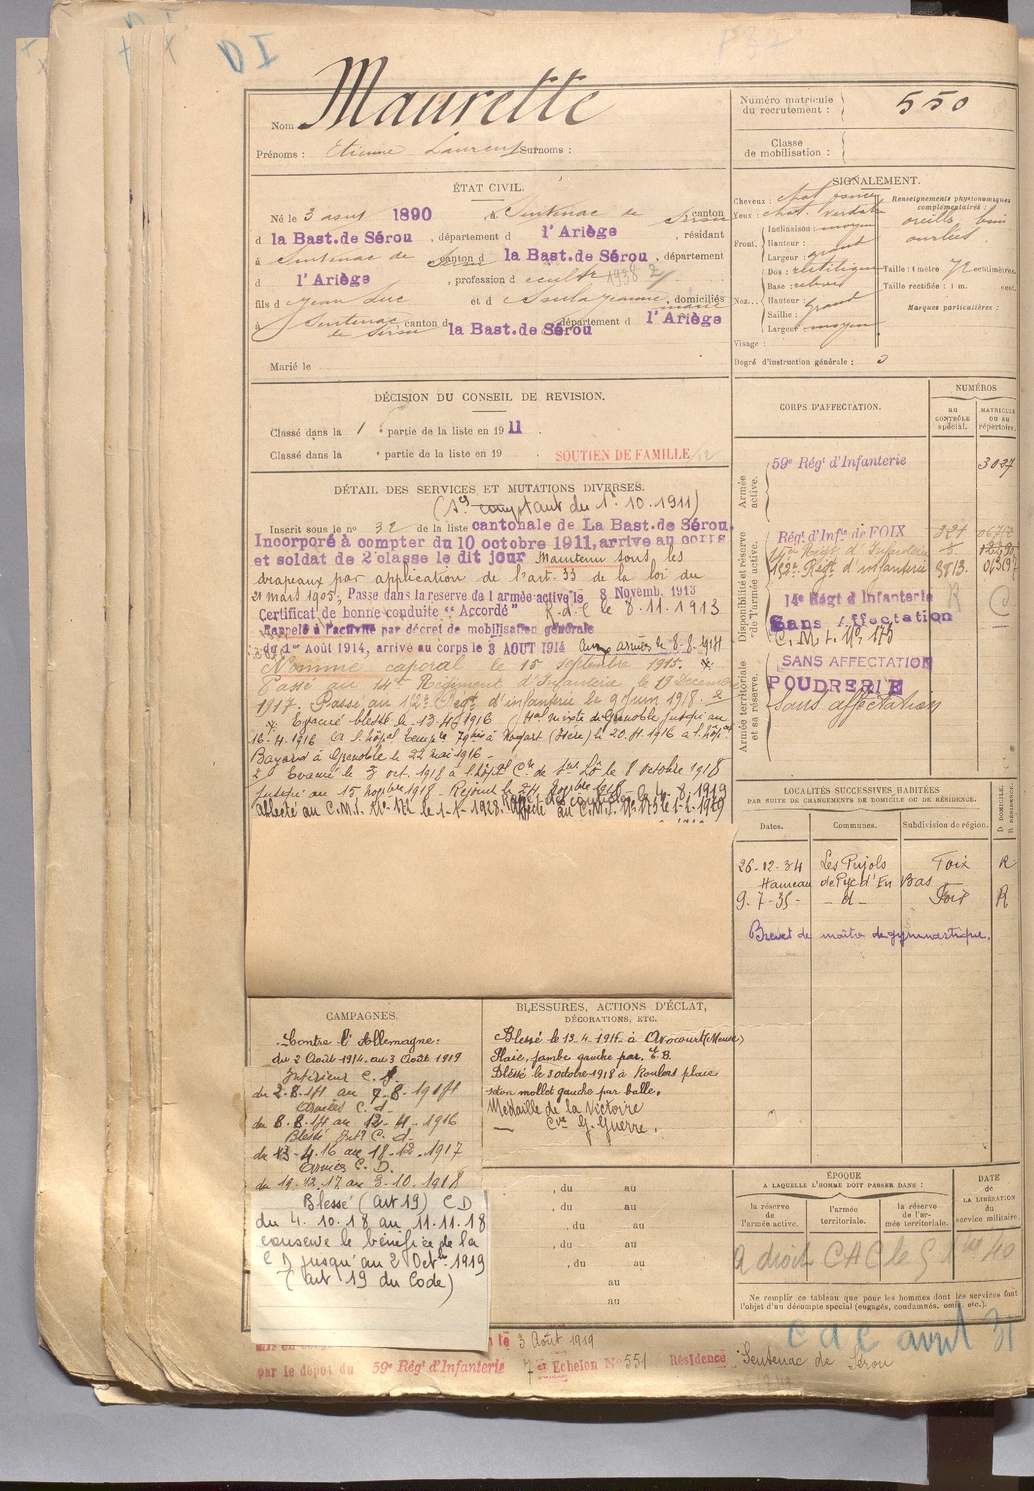 DI
Nom Maurette
Prénoms : Etienne Laurent Surnoms :
Numéro matricule du recrutement : 550
Classe de mobilisation :
ÉTAT CIVIL.
Né le 3 aout 1890, à Sentenac de Serou canton
d la Bast. de Sérou, département d l'Ariège, résidant
à Sentenac de Serou canton d la Bast. de Sérou, département
d l'Ariège, profession d cultr
fils d Jean Luc et d Soula Jeanne, domiciliés
à Sentenac de Serou, canton d la Bast. de Sérou département d l'Ariège
Marié le
SIGNALEMENT.
Cheveux : chat foncé
Yeux : chat. verdatre
Front. Inclinaison : moyen
Hauteur :
Largeur : grand
Nez. Dos : rectiligne
Base : relevé
Hauteur :
Saillie : grand
Largeur : moyen
Visage :
Renseignements physionomiques complémentaires :
oreille bien
ourlées
Taille : 1 mètre 72 centimètres.
Taille rectifiée : 1 m. cent.
Marques particulières :
Degré d'instruction générale : 3
DÉCISION DU CONSEIL DE REVISION.
Classé dans la 1e partie de la liste en 1911.
Classé dans la e partie de la liste en 19
SOUTIEN DE FAMILLE
DÉTAIL DES SERVICES ET MUTATIONS DIVERSES.
comptant du 1r 10.1911)
Inscrit sous le no 32 de la liste cantonale de La Bast. de Sérou.
Incorporé à compter du 10 octobre 1911, arrivé au corps
et soldat de 2e classe le dit jour Maintenu sous les
drapeaux par application de l'art. 33 de la loi du
21 mars 1905, Passé dans la réserve de l'armée active le 8 Novemb. 1913
Certificat de bonne conduite "Accordé" R.d.C le 8.11.1913
Rappelé à l'activité par décret de mobilisation générale
du 1er Août 1914, arrivé au corps le 3 AOUT 1914 Aux armées le 8-8-1914
Nommé caporal le 15 septembre 1915.
Passé au 14e Régiment d'Infanterie le 19 Décembre
1917. Passé au 112e Régt d'infanterie le 9 Juin 1918. 2
Evacué blessé le 13-4-1916 mixte de Grenoble jusqu'au
16-4-1916 à l'hôpal tempre à (Isère) le 20.4.1916 à l'hôpal
Bayard à Grenoble le 22 mai 1916 -
2 Evacué le 3 oct. 1918 à l'hôpal de St Lô le 8 octobre 1918
jusqu'au 15 novbre 1918 - Rejoint le
affecté au C.M.I. le 1-1-1928. Affecté au C.M.I. No 175 le 1-1-1929
CORPS D'AFFECTATION.
NUMÉROS
AU CONTRÔLE spécial.
MATRICULE OU AU répertoire.
Armée active.
59e Régt d'Infanterie 3027
Disponibilité et réserve de l'armée active.
Régt d'Infie de FOIX 321
112e Régt d'infanterie 3813.
14e Régt d'Infanterie
Sans Affectation
C.M.I. No 175
Armée territoriale et sa réserve.
SANS AFFECTATION
POUDRERIE
Sans affectation
LOCALITÉS SUCCESSIVES HABITÉES
PAR SUITE DE CHANGEMENTS DE DOMICILE OU DE RÉSIDENCE.
Dates. Communes. Subdivision de région. D DOMICILE. R RÉSIDENCE.
26-12-34 Les Pujols Foix R
Hameau de Pyc d'En Bas
9-7-35- - d - Foix R
Brevet de maître de gymnastique.
CAMPAGNES.
Contre l'Allemagne :
du 2 Août 1914 au 3 Août 1919
Intérieur C. S.
du 2.8.14 au 7-8-1914
Armées C. d.
du 8.8.14 au 12-4-1916
Blessé Intr C. d.
du 13-4-16 au 18-12-1917
Armées C. D.
du 19.12.17 au 3-10.1918
Blessé (art 19) C D
du 4.10.18 au 11.11.18
conserve le bénéfice de la
C D jusqu'au 2 Octbre 1919
(art 19 du Code)
BLESSURES, ACTIONS D'ÉCLAT,
DÉCORATIONS, ETC.
Blessé le 13-4-1916 à Avocourt (Meuse)
Plaie, jambe gauche par E.B.
Blessé le 3 octobre 1918 à plaie
séton mollet gauche par balle.
Médaille de la Victoire
— Cve G. Guerre.
, du au
, du au
, du au
, du au
, du au
au
au
ÉPOQUE
A LAQUELLE L'HOMME DOIT PASSER DANS :
la réserve de l'armée active.
l'armée territoriale.
la réserve de l'armée territoriale.
DATE de LA LIBÉRATION du service militaire.
A droit CAC le 40
Ne remplir ce tableau que pour les hommes dont les services font
l'objet d'un décompte spécial (engagés, condamnés, omis, etc.).
cac avril 31
le 3 Août 1919
par le dépôt du 59e Régt d'Infanterie 7e Echelon No 551 Résidence Sentenac de Sérou